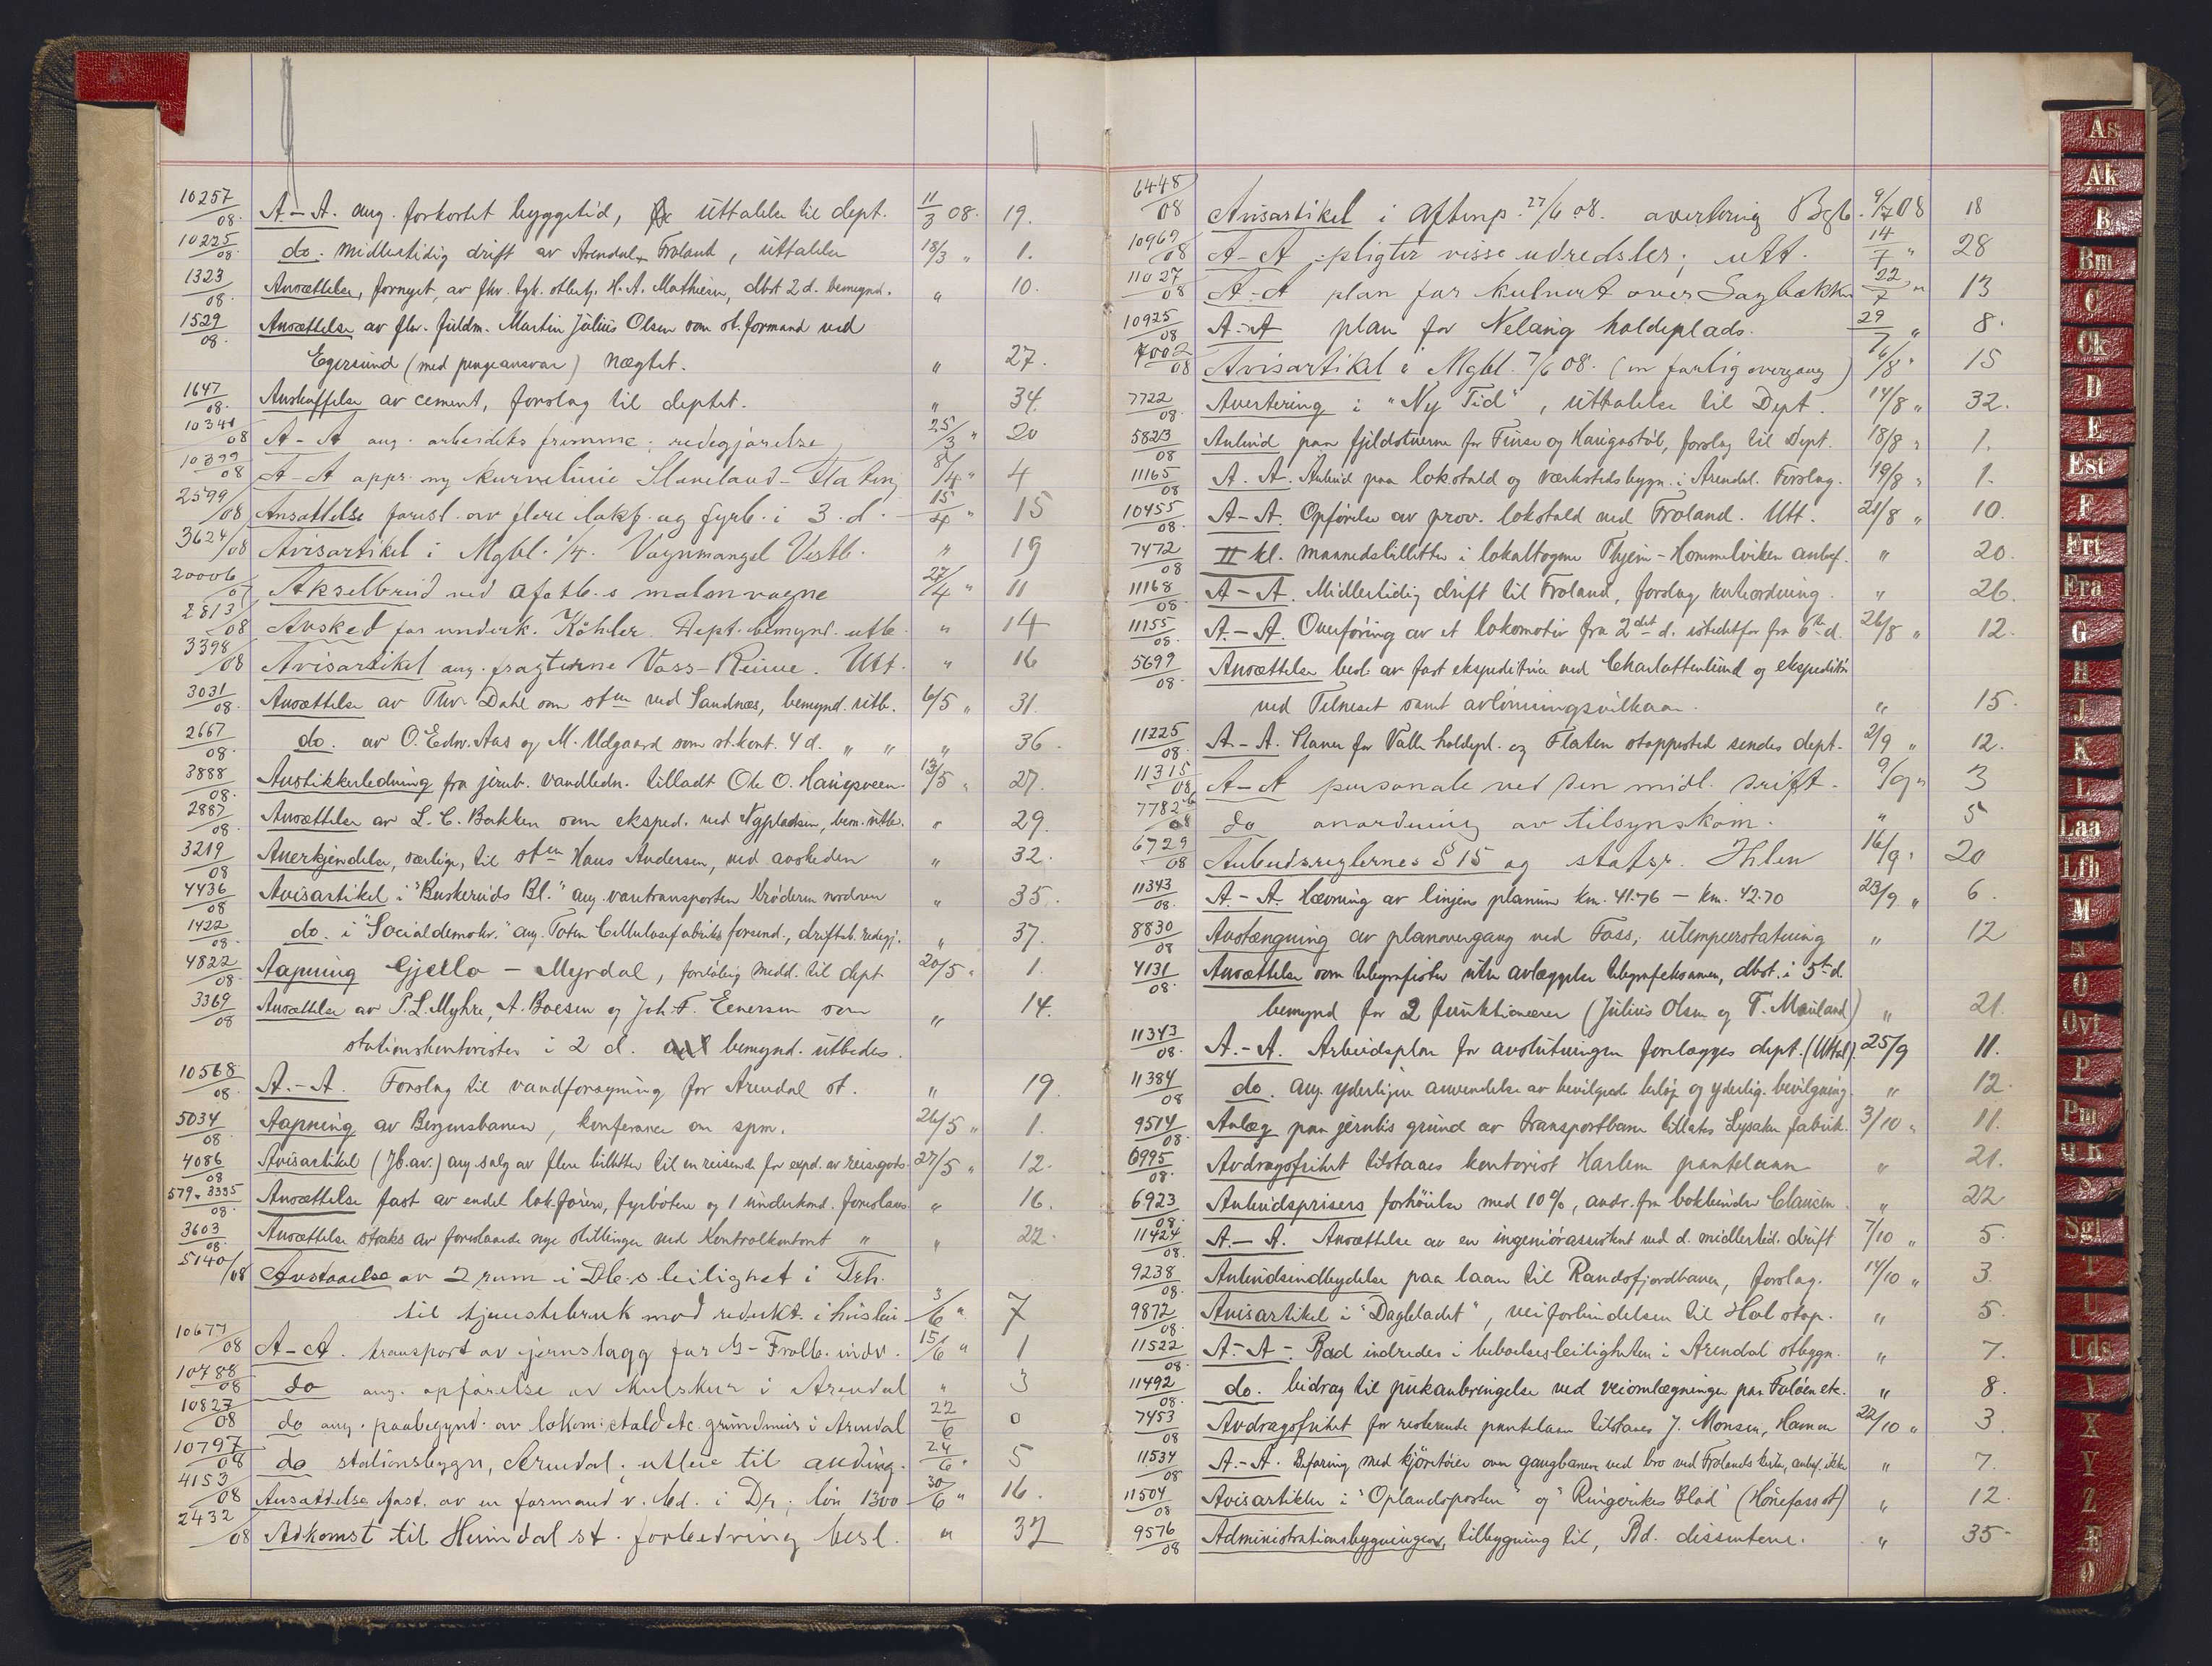 10257/08. A-A. ang. forkortet byggetid, uttalelse til dept. 11/3 08. 19.
10225/08. do. midlertidig drift av Arendal-Froland, uttalelse 18/3 " 1.
1323/08. Ansættelse, fornyet, av fhv. H. A. Mathiesen, dbst 2 d. bemynd. " 10.
1529/08. Ansættelse av fhv. fuldm. Martin Julius Olsen som st. formand ved
Egersund (med pengeansvar) nægtet. " 27.
1647/08. Anskaffelse av cement, forslag til deptet. " 34.
10341/08 A-A ang. arbeidets fremme; redegjørelse 25/3 " 20
10399/08 A-A appr. ny kurvelinie 8/4 " 4
2599/08 Ansættelse foresl. av flere lokf. og fyrb. i 3. d. 15/4 " 15
3624/08 Avisartikel i Mgbl. 1/4. Vognmangel Vestb. " 19
20006/07 Akselbrud ved Ofotb.s malmvogne 27/4 " 11
2813/08 Avsked for underk. Köhler. Dept. bemynd. utb. " 14
3398/08 Avisartikel ang. fragterne Voss-Reime. Utt. " 16
3031/08. Ansættelse av Thv. Dahl som stm ved Sandnes, bemynd. utb. 6/5 " 31.
2667/08. do. av O. Edv. Aas og M. Udgaard som st. kont. 4 d. " " " 36.
3888/08. Avstikkerledning fra jernb. vandledn. tilladt Ole O. 13/5 " 27.
2887/08. Ansættelse av L. C. Bakken som eksped. ved Nypladsen, bem. utb. " 29.
3219/08 Anerkjendelse, særlige, til stm Hans Andersen, ved avskeden " 32.
4436/08 Avisartikel i "Buskeruds Bl." ang. varetransporten Krøderen nordover " 35.
1422/08. do. i "Socialdemokr." ang. Toten Cellulosefabriks forsend., driftsb. redegj. " 37.
4822/08. Aapning Gjello - Myrdal, foreløbig medd. til dept 20/5 " 1.
3369/08 Ansættelse av P. L. Myhre, A. Boesen og Joh. F. Evensen som " 14.
stationskontorister i 2 d. bemynd. utbedes.
10568/08. A.-A. Forslag til vandforsyning for Arendal st. " 19.
5034/08. Aapning av Bergensbanen, konferance om spm. 26/5 " 1.
4086/08 Avisartikel (Jb.av.) ang. salg av flere billetter til en reisende for exped. av reisegods. 27/5 " 12.
579 & 3335/08. Ansættelse fast av endel lok.førere, fyrbøtere og 1 underkond. foreslaaes " 16.
3603/08. Ansættelse straks av foreslaaede nye stillinger ved Kontrolkontoret " " 22.
5140/08 Avstaaelse av 2 rum i Db.s leilighet i Trh.
til tjenestebruk mod redukt. i husleie 3/6 " 7
10677/08 A-A. transport av jernslagg for G-Frollb. indv. 15/6 " 1
10788/08 do ang. opførelse av kulskur i Arendal " 3
10827/08 do ang. paabegynd. av lokom. stald etc. grundmur i Arendal 22/6 0
10797/08 do stationsbygn, Arendal; utleie til 24/6 " 5
4153/08 Ansættelse fast. av en formand v. bd. i Dr; løn 1300 30/6 " 16.
2432/08 Adkomst til Heimdal st. forbedring besl. " 37
6448/08 Avisartikel i Aftenp. 27/6 08. avertering Bgb. 9/7 08 18
10969/08 A-A :pligter visse udredsler; utt. 14/7 " 28
11027/08 A-A plan for kulvert over Sagbækken 22/7 " 13
10925/08 A-A plan for Nelaug holdeplads. 29/7 " 8.
7002/08 Avisartikel i Mgbl. 7/6 08. (en farlig overgang) 6/8 " 15
7722/08. Avertering i "Ny Tid", uttalelse til Dept. 14/8 " 32.
5823/08 Anbud paa fjeldstuerne for Finse og Haugastøl, forslag til Dept. 18/8 " 1.
11165/08 A. A. Anbud paa lokstald og værkstedsbygn. i Arendal. Forslag. 19/8 " 1.
10455/08. A-A. Opførelse av prov. lokstald ved Froland. Utt. 21/8 " 10.
7472/08 II kl. maanedsbilletter i lokaltogene Thjem-Hommelviken anbef. " 20.
11168/08. A-A. Midlertidig drift til Froland, forslag ruteordning. " 26.
11155/08. A.-A. Overføring av et lokomotiv fra 2det d. istedetfor fra 6te d. 26/8 " 12.
5699/08. Ansættelse besl. av fast ekspeditrice ved Charlottenlund og ekspeditør
ved Tilneset samt avlønningsvilkaar. " 15.
11225/08. A.-A. Planer for Valle holdepl. og Flaten stoppested sendes dept. 2/9 " 12.
11315/08 A-A personale ved den midl. drift. 9/9 " 3
7782/08 do anordning av tilsynskom. " 5
6729/08 Anbudsreglernes § 15 og statsr. Ihlen 16/9 " 20
11343/08. A.-A. Hævning av linjens planum km. 41.76 - km. 42.70 23/9 " 6.
8830/08 Avstængning av planovergang ved Foss, ulempeerstatning " 12
4131/08. Ansættelse som telegrafister uten avlæggelse telegrafeksamen, dbst. i 5te d.
bemynd for 2 funktionærer (Julius Olsen og T. Mauland) " 21.
11343/08. A.-A. Arbeidsplan for avslutningen forelægges dept. (Uttal). 25/9 11.
11384/08 do. ang. yderligere anvendelse av bevilgede beløp og yderlig. bevilgning. " 12.
9514/08. Anlæg paa jernb.s grund av transportbane tillates Lysaker fabrik. 3/10 " 11.
6995/08. Avdragsfrihet tilstaaes kontorist Harlem pantelaan " 21.
6923/08. Anbudsprisers forhøielse med 10%, andr. fra bokbinder Clausen. " 22
11424/08. A.-A. Ansættelse av en ingeniørassistent ved d. midlertid. drift 7/10 " 5.
9238/08. Anbudsindbydelse paa laan til Randsfjordbanen, forslag. 14/10 " 3.
9872/08. Avisartikel i "Dagbladet", veiforbindelsen til Hol stop. " 5.
11522/08. A.-A-. Bad indredes i beboelsesleiligheten i Arendal stbygn. " 7.
11492/08. do. bidrag til pukanbringelse ved veiomlægningen paa etc. " 8.
7453/08 Avdragsfrihet for resterende pantelaan tilstaaes J. Monsen, Hamar 22/10 " 3.
11534/08 A.-A. Befaring med kjøretøier over gangbanen ved bro ved Frolands kirke, anbef. ikke " 7.
11504/08 Avisartikler i "Oplandsposten" og "Ringerikes Blad" (Hønefoss st) " 12.
9576/08 Administrationsbygningen, tilbygning til, Bd. dissentene. " 35
As
Ak
B
Bm
C
Ck
D
E
Est
F
Frt
Fra
G
H
J
K
L
Laa
Lfb
M
N
O
Ovf
P
Pm
Q.R
S
Sgl
T
U
Uds
V
X
Y
Z
Æ
Ø